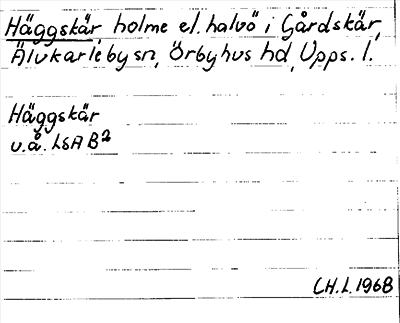 Häggskär holme el. halvö i Gårdskär,
Älvkarleby sn, Örbyhus hd, Upps. l.
Häggskär
u.å. LSA B2
CH.L. 1968